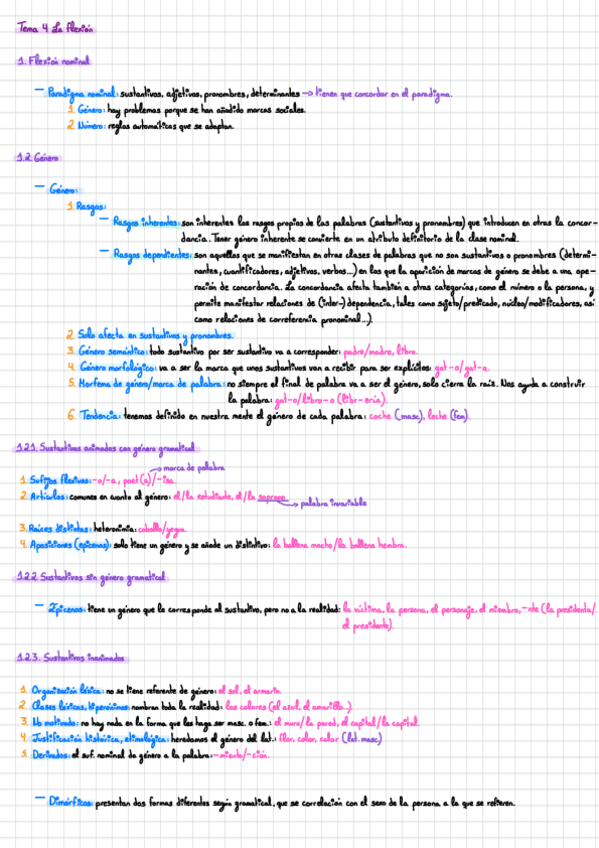 Tema 4 La flexión
1. Flexión nominal
— Paradigma nominal: sustantivos, adjetivos, pronombres, determinantes → tienen que concordar en el paradigma.
1. Género: hay problemas porque se han añadido marcas sociales.
2. Número: reglas automáticas que se adaptan.
1.2 Género
— Género:
1. Rasgos:
— Rasgos inherentes: son inherentes los rasgos propios de las palabras (sustantivos y pronombres) que introducen en otras la concor-
dancia. Tener género inherente se convierte en un atributo definitorio de la clase nominal.
— Rasgos dependientes: son aquellos que se manifiestan en otras clases de palabras que no son sustantivos o pronombres (determi-
nantes, cuantificadores, adjetivos, verbos...) en las que la aparición de marcas de género se debe a una ope-
ración de concordancia. La concordancia afecta también a otras categorías, como el número o la persona, y
permite manifestar relaciones de (inter-) dependencia, tales como sujeto/predicado, núcleo/modificadores, así
como relaciones de correferencia pronominal...).
2. Solo afecta en sustantivos y pronombres.
3. Género semántico: todo sustantivo por ser sustantivo va a corresponder: padre/madre, libro.
4. Género morfológico: va a ser la marca que unos sustantivos van a recibir para ser explícitos: gat-o/gat-a.
5. Morfema de género/marca de palabra: no siempre el final de palabra va a ser el género, solo cierra la raíz. Nos ayuda a construir
la palabra: gat-o/libr-o (libr-ería).
6. Tendencia: tenemos definido en nuestra mente el género de cada palabra: coche (masc), leche (fem).
1.2.1. Sustantivos animados con género gramatical
→ marca de palabra
1. Sufijos flexivos: -o/-a, poet(a)/-isa.
2. Artículos: comunes en cuanto al género: el/la estudiante, el/la soprano
→ palabra invariable
3. Raíces distintas: heteronimia: caballo/yegua.
4. Aposiciones (epicenos): solo tiene un género y se añade un distintivo: la ballena macho/la ballena hembra.
1.2.2 Sustantivos sin género gramatical
— Epicenos: tiene un género que le corresponde al sustantivo, pero no a la realidad: la víctima, la persona, el personaje, el miembro, -nte (la presidenta/
el presidente).
1.2.3. Sustantivos inanimados
1. Organización léxica: no se tiene referente de género: el sol, el armario.
2. Clases léxicas, hiperónimos: nombran toda la realidad: los colores (el azul, el amarillo...).
3. No motivado: no hay nada en la forma que les haga ser masc. o fem.: el muro/la pared, el capital/la capital.
4. Justificación histórica, etimológica: heredamos el género del lat.: flor, color, calor (lat. masc)
5. Derivados: el suf. nominal da género a la palabra: -miento/-ción.
— Dimórficos: presentan dos formas diferentes según gramatical, que se correlación con el sexo de la persona a la que se refieren.